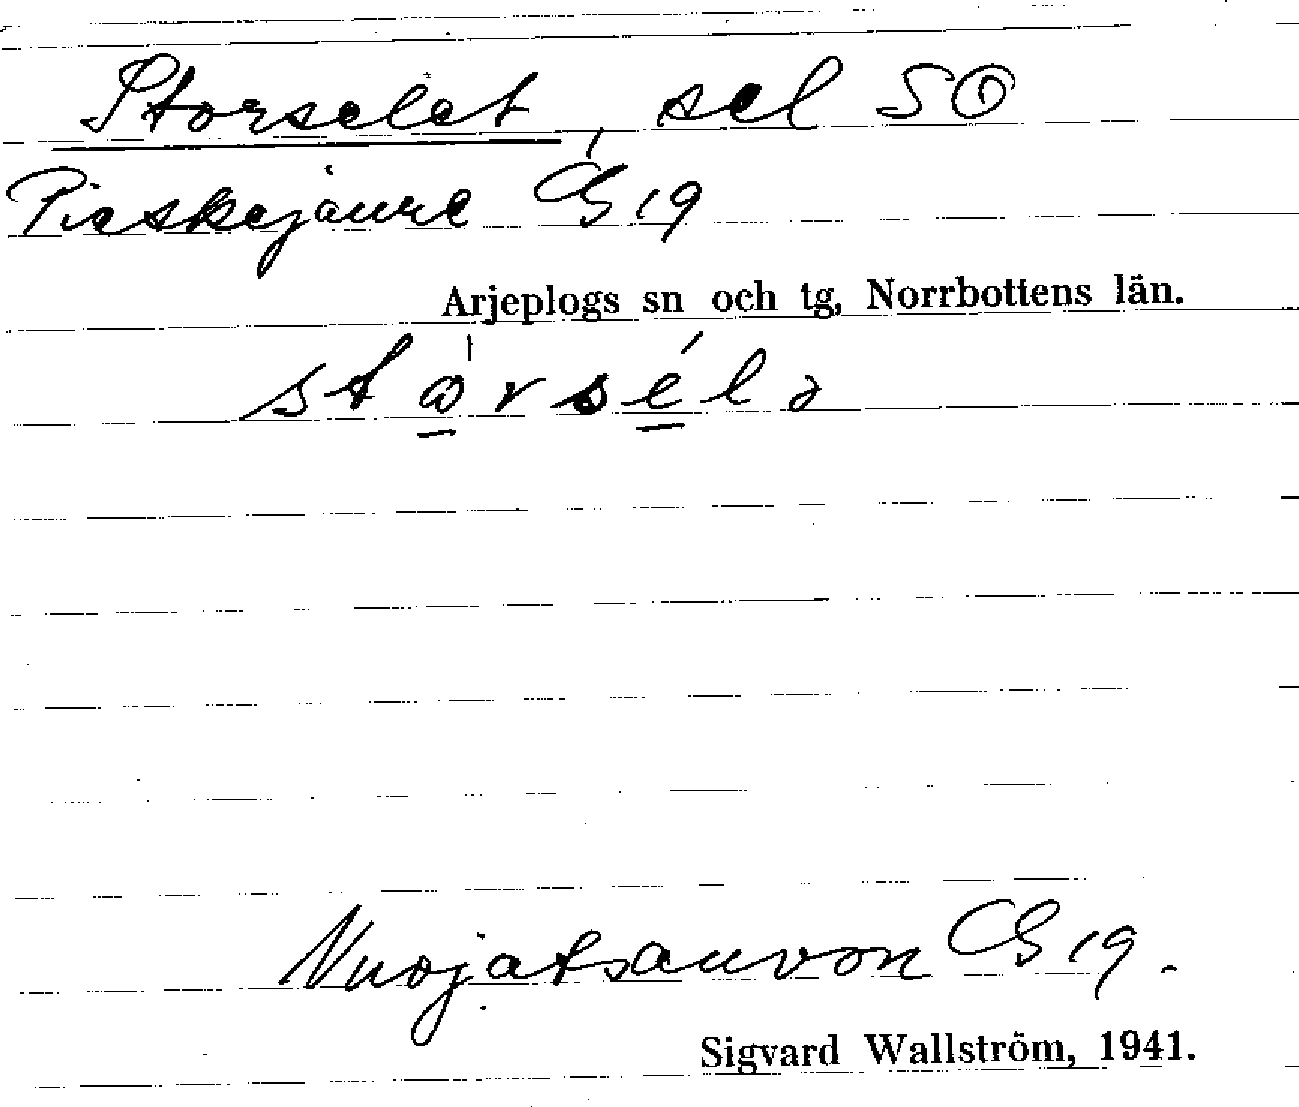 Storselet, sel SO
Pieskejaure GS 19
Arjeplogs sn och tg, Norrbottens län.
Nuojatsauvon GS 19.
Sigvard Wallström, 1941.